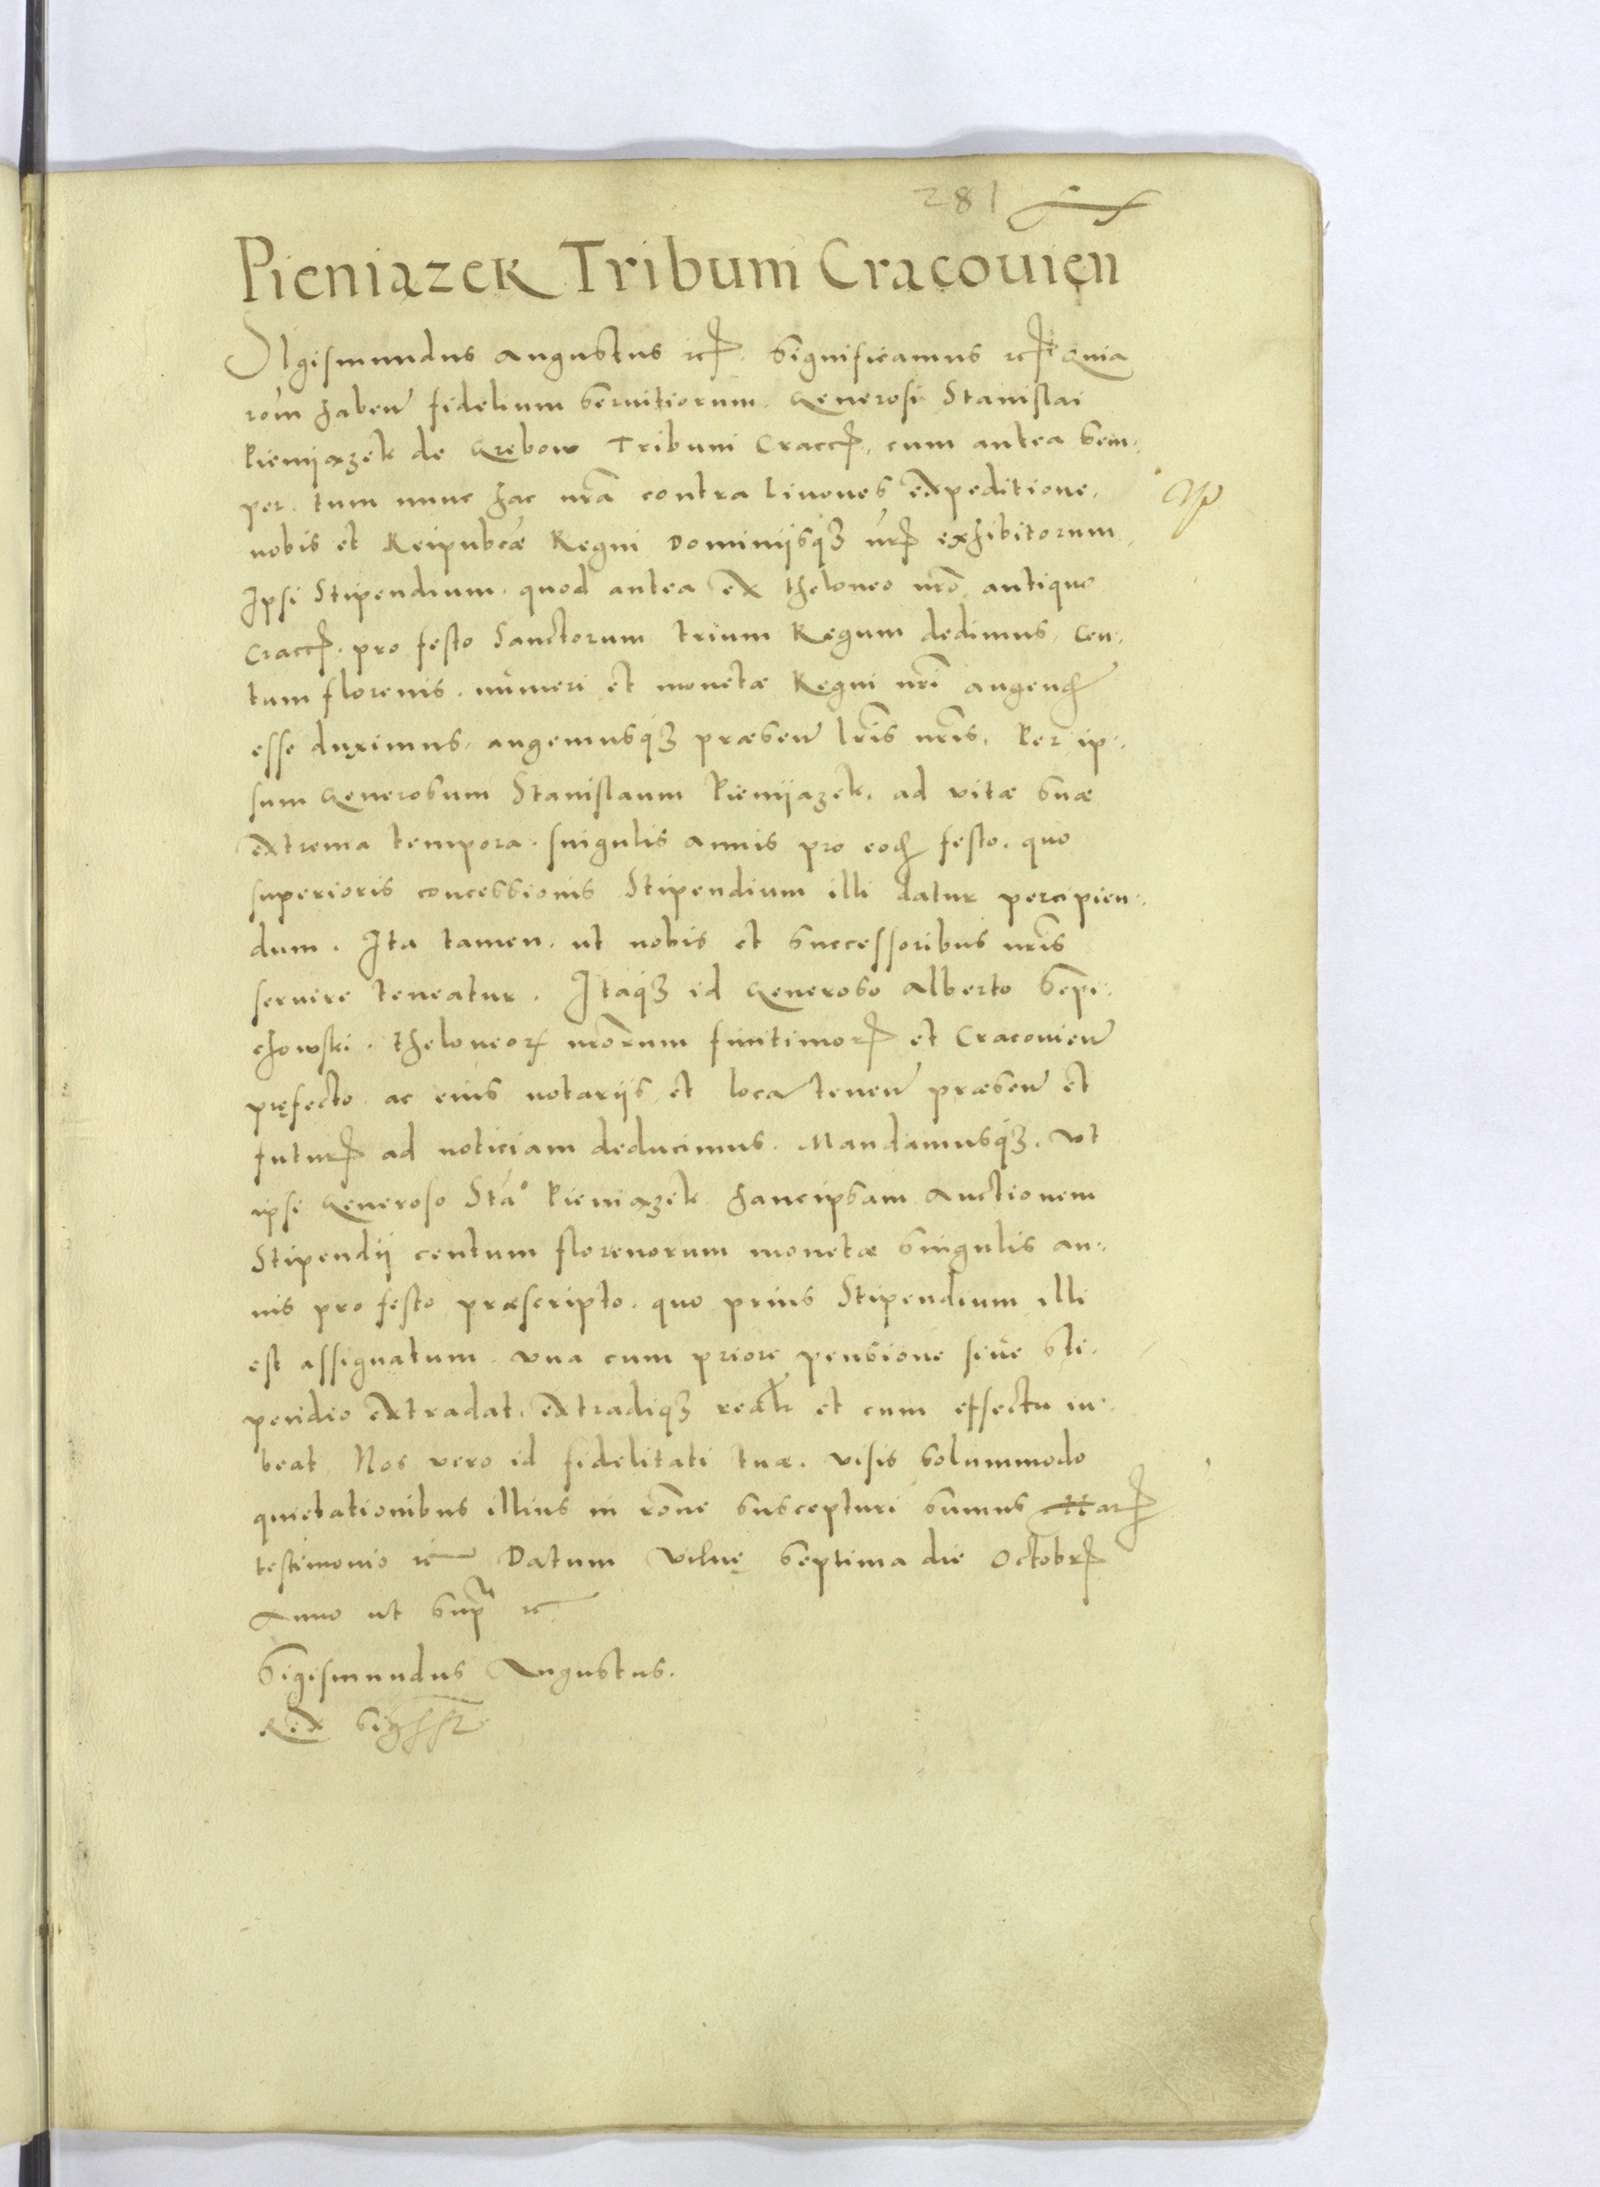 281
Pieniązek Tribuni Cracouien
SIgismundus Augustus etc. Significamus etc. Quia
rom̃ haben̄ fidelium seruitiorum. Generosi Stanislai
Pienijążek de Grębow Tribuni Cracc. cum antea sem-
per. tum nunc hac nr̃a contra Liuones expeditione,
nobis et Reipubcæ Regni Dominijsq3 nr̃ exhibitorum,
Ipsi Stipendium. quod antea ex theloneo nr̃o antiquo
Cracc. pro festo Sanctorum trium Regum dedimus, Cen-
tum florenis. numeri et monetæ Regni nr̃i augend
esse duximus. augemusq3 præsen̄ lr̃is nr̃is. Per ip-
sum Generosum Stanislaum Pienijążek. ad vitæ suæ
extrema tempora. singulis annis pro eod festo. quo
superioris concessionis Stipendium illi datur percipien-
dum. Ita tamen. ut nobis et successoribus nr̃is
seruire teneatur. Itaq3 id Generoso Alberto Sepi-
chowski. theloneor nr̃orum finitimor et Cracouien̄
pręfecto. ac eius notarijs et loca tenen̄ præsen̄ et
futur ad noticiam deducimus. Mandamusq3. Vt
ipsi Generoso Sta° Pieniążek hancipsam Auctionem
Stipendij centum florenorum monetæ singulis an-
nis pro festo præscripto. quo prius Stipendium illi
est assignatum. Vna cum priore pensione siue sti-
pendio extradat. extradiq3 realr et cum effectu iu-
beat Nos vero id fidelitati tuæ. visis solummodo
quietationibus illius in rõne suscepturi sumus Har
testimonio etc Datum Vilnę Septima die Octobr
Anno ut supra etc
Sigismundus Augustus.
Rex sszt